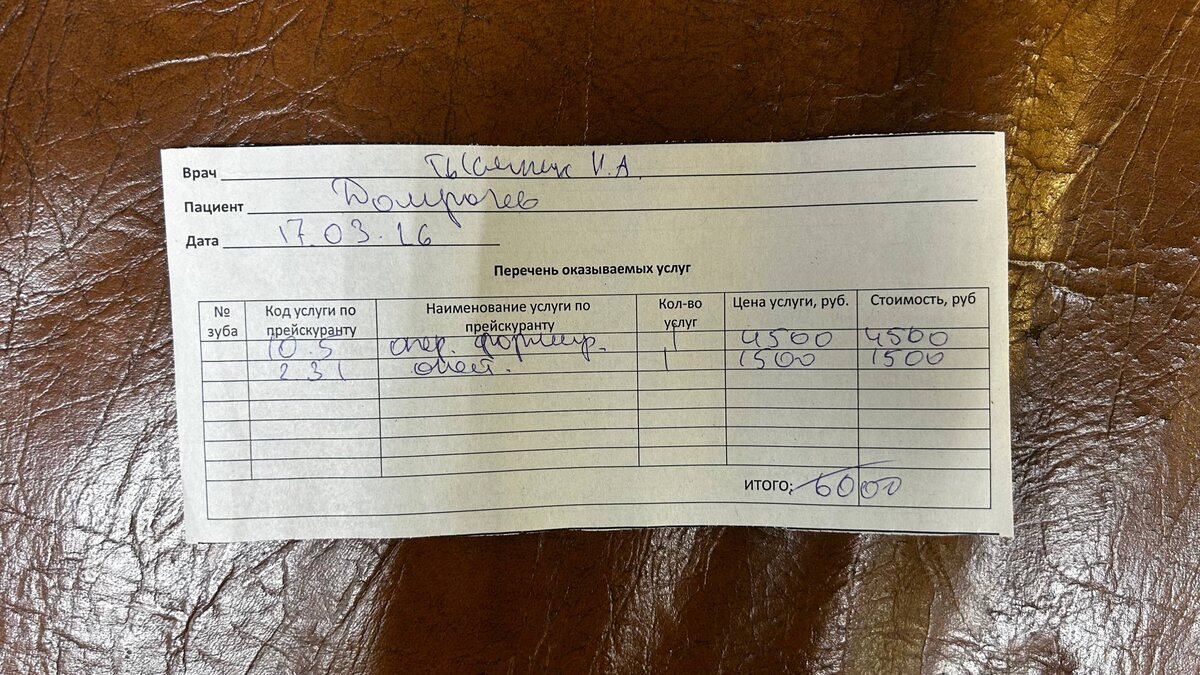 Врач И.А.
Пациент Домрачев
Дата 17.03.26
Перечень оказываемых услуг
№ зуба Код услуги по прейскуранту Наименование услуги по прейскуранту Кол-во услуг Цена услуги, руб. Стоимость, руб
10.5 1 4500 4500
231 анест. 1 1500 1500
ИТОГО: 6000